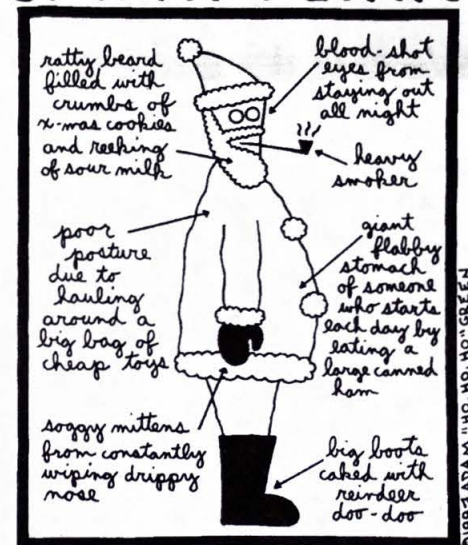 ratty beard
filled with
crumbs of
x-mas cookies
and reeking
of sour milk
blood-shot
eyes from
staying out
all night
heavy
smoker
poor
posture
due to
hauling
around a
big bag of
cheap toys
giant
flabby
stomach
of someone
who starts
each day by
eating a
large canned
ham
soggy mittens
from constantly
wiping drippy
nose
big boots
caked with
reindeer
doo-doo
ADAM "HO, HO, HO" GREEN